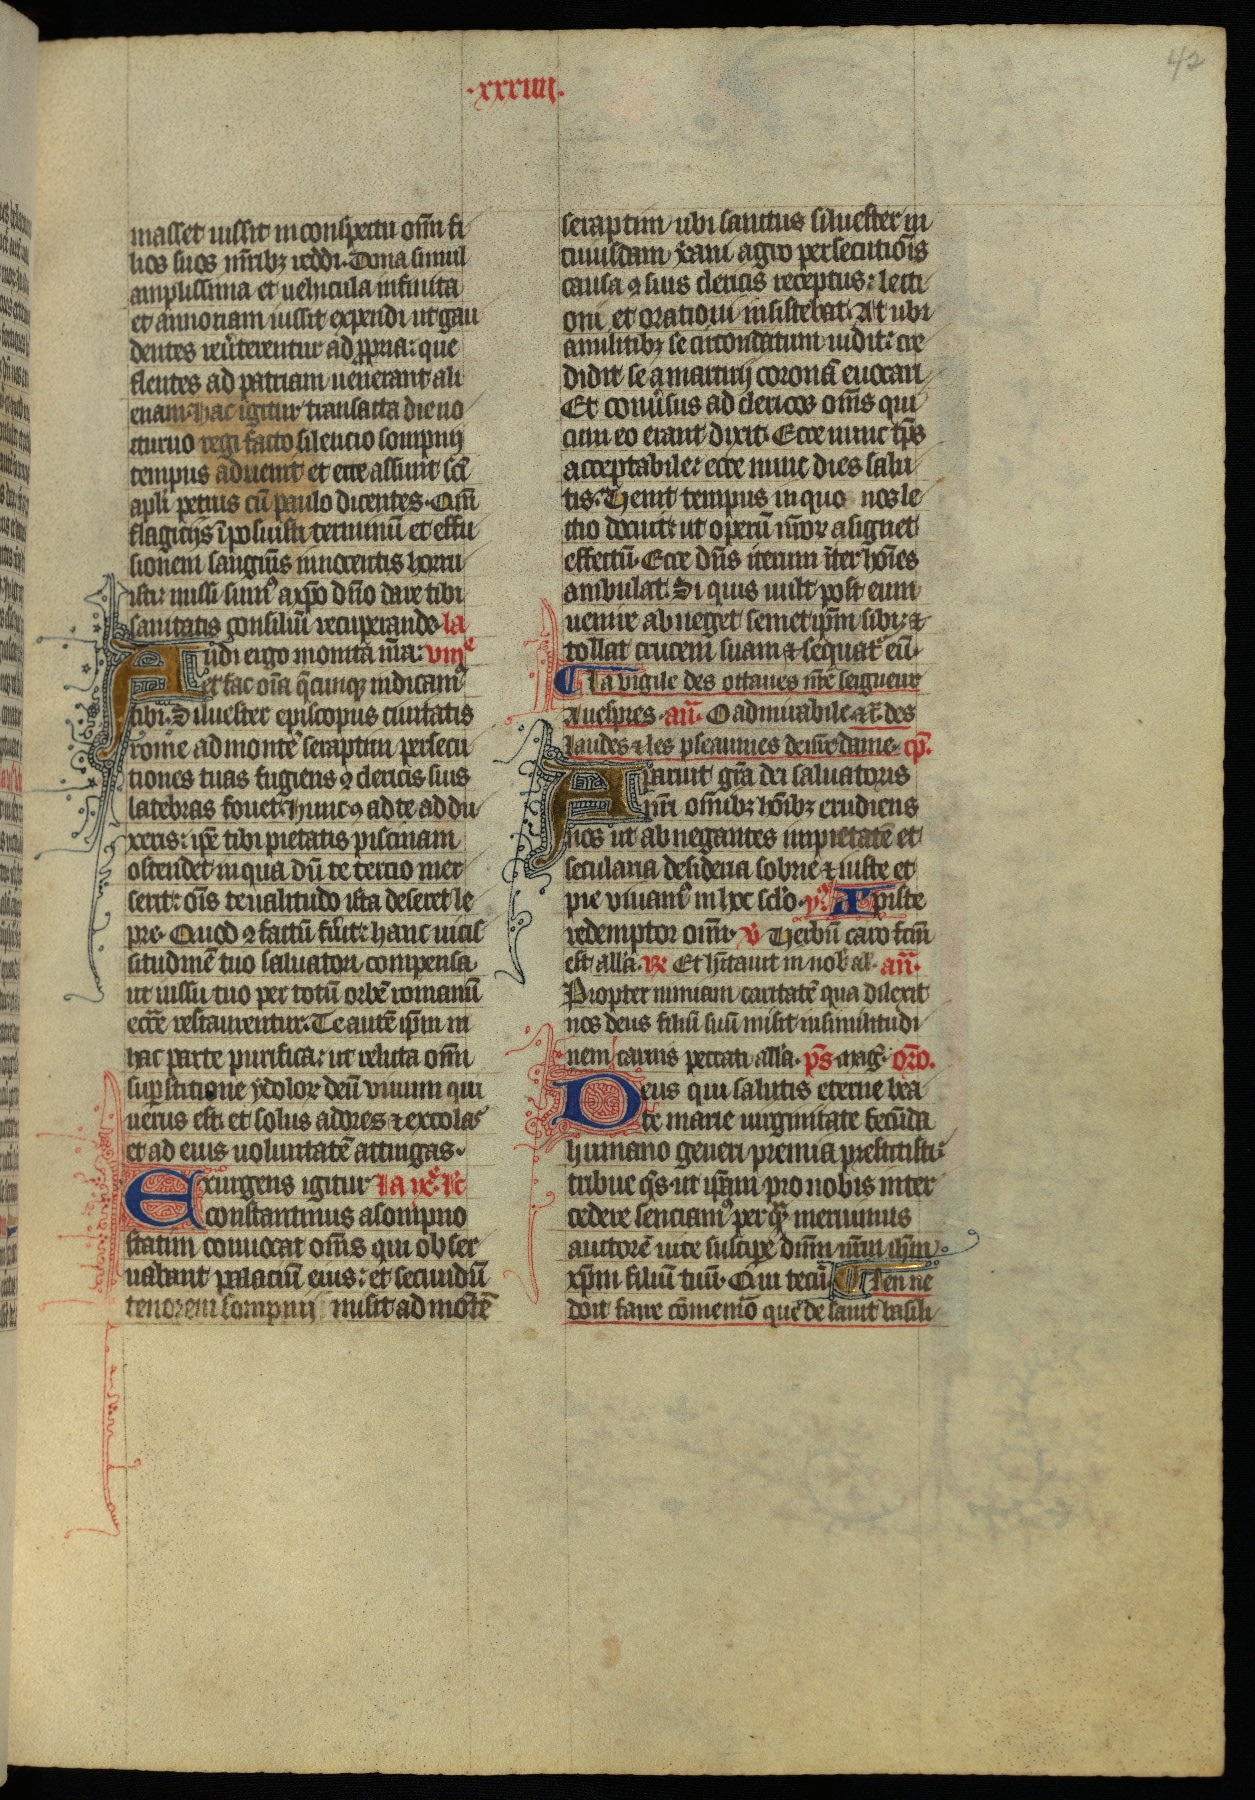 ·xxxiiii·
42
masset iussit in conspectu om̄ fi
lios suos mr̄ibꝫ reddi. Dona simul
amplissima et uehicula infinita
et annonam iussit expendi ut gau
dentes reũterentur ad ꝓpria: que
flentes ad patriam uenerant ali
enam. hac igitur transacta die no
cturno regi facto silencio sompnij
tempus aduenit et ecce assunt sc̄i
apl̄i petrus cū paulo dicentes. Qm̄
flagicijs ī posuisti terminū et effu
sionem sanguīs innocentis horru
isti: missi sumꝰ a xp̄o dn̄o dare tibi
sanitatis consiliū recuperande. la
Audi ergo monita nr̄a: viijͤ
et fac oīa q̄cunqꝫ indicamꝰ
tibi. Siluester episcopus ciuitatis
rome ad montē seraptim persecu
tiones tuas fugiens ꝯ clericis suis
latebras fouet: hunc ꝯ ad te addu
xeris: ip̄e tibi pietatis piscinam
ostendet in qua dū te tercio mer
serit: oīs te ualitudo ista deseret le
pre. Quod ꝯ factū fũit: hanc uicis
situdinē tuo saluatori compensa
ut iussu tuo per totū orbē romanū
ecc̄e restaurentur. Te autē ip̄m in
hac parte purifica: ut relicta omī
suꝑstitione ydoloꝝ deū viuum qui
uerus est: et solus adores ⁊ excolas
et ad eius voluntatē attingas.
Exurgens igitur la ixͤ. lc̄
constantinus a sompno
statim conuocat om̄s qui obser
uabant palaciū eius: et secundū
tenorem sompnij misit ad mōtē
seraptim ubi sanctus siluester in
cuiusdam xp̄iani agro persecutiōis
causa ꝯ suis clericis receptus: lecti
oni et orationi insistebat. At ubi
a militibꝫ se circondatum uidit: cre
didit se a martirij coronā euocari
Et conũsus ad clericos om̄s qui
cum eo erant dixit. Ecce nunc tp̄s
acceptabile: ecce nunc dies salu
tis. Uenit tempus in quo nos le
ctio docuit: ut operū nr̄oꝝ assignet
effectū. Ecce dn̄s iterum īter hōīes
ambulat. Si quis uult post eum
uenire abneget semet ip̄m sibi: ⁊
tollat crucem suam ⁊ sequatͬ eū.
¶ La vigile des ottaues nr̄e seigneur
A uespres. an̄. O admirabile. ⁊c̄. des
laudes ⁊ les pseaumes de nr̄e dame. cp̄.
Aparuit gr̄a dei saluatoris
nr̄i om̄ibꝫ hōībꝫ erudiens
nos ut abnegantes impietatē et
secularia desideria sobrie ⁊ iuste et
pie viuamꝰ in hoc sc̄lo. ꝶ Xp̄iste
redemptor omī. ℣ Uerbū caro fc̄m
est all̄a. ℟ Et hītauit in nob̄ al̄. an̄.
Propter nimiam caritatē qua dilexit
nos deus filiū suū misit in similitudi
nem carnis peccati all̄a. p̄s. maḡ. or̄o.
Deus qui salutis eterne bea
te marie uirginitate fecūda
humano generi premia prestitisti:
tribue q̄s ut ip̄am pro nobis inter
cedere senciamꝰ per quā meruimus
auctorē uite suscipe dnm̄ nr̄m ihm̄
xp̄m filiū tuū. Qui tecū. ¶ Len ne
doit faire cōmemō que de saint basili